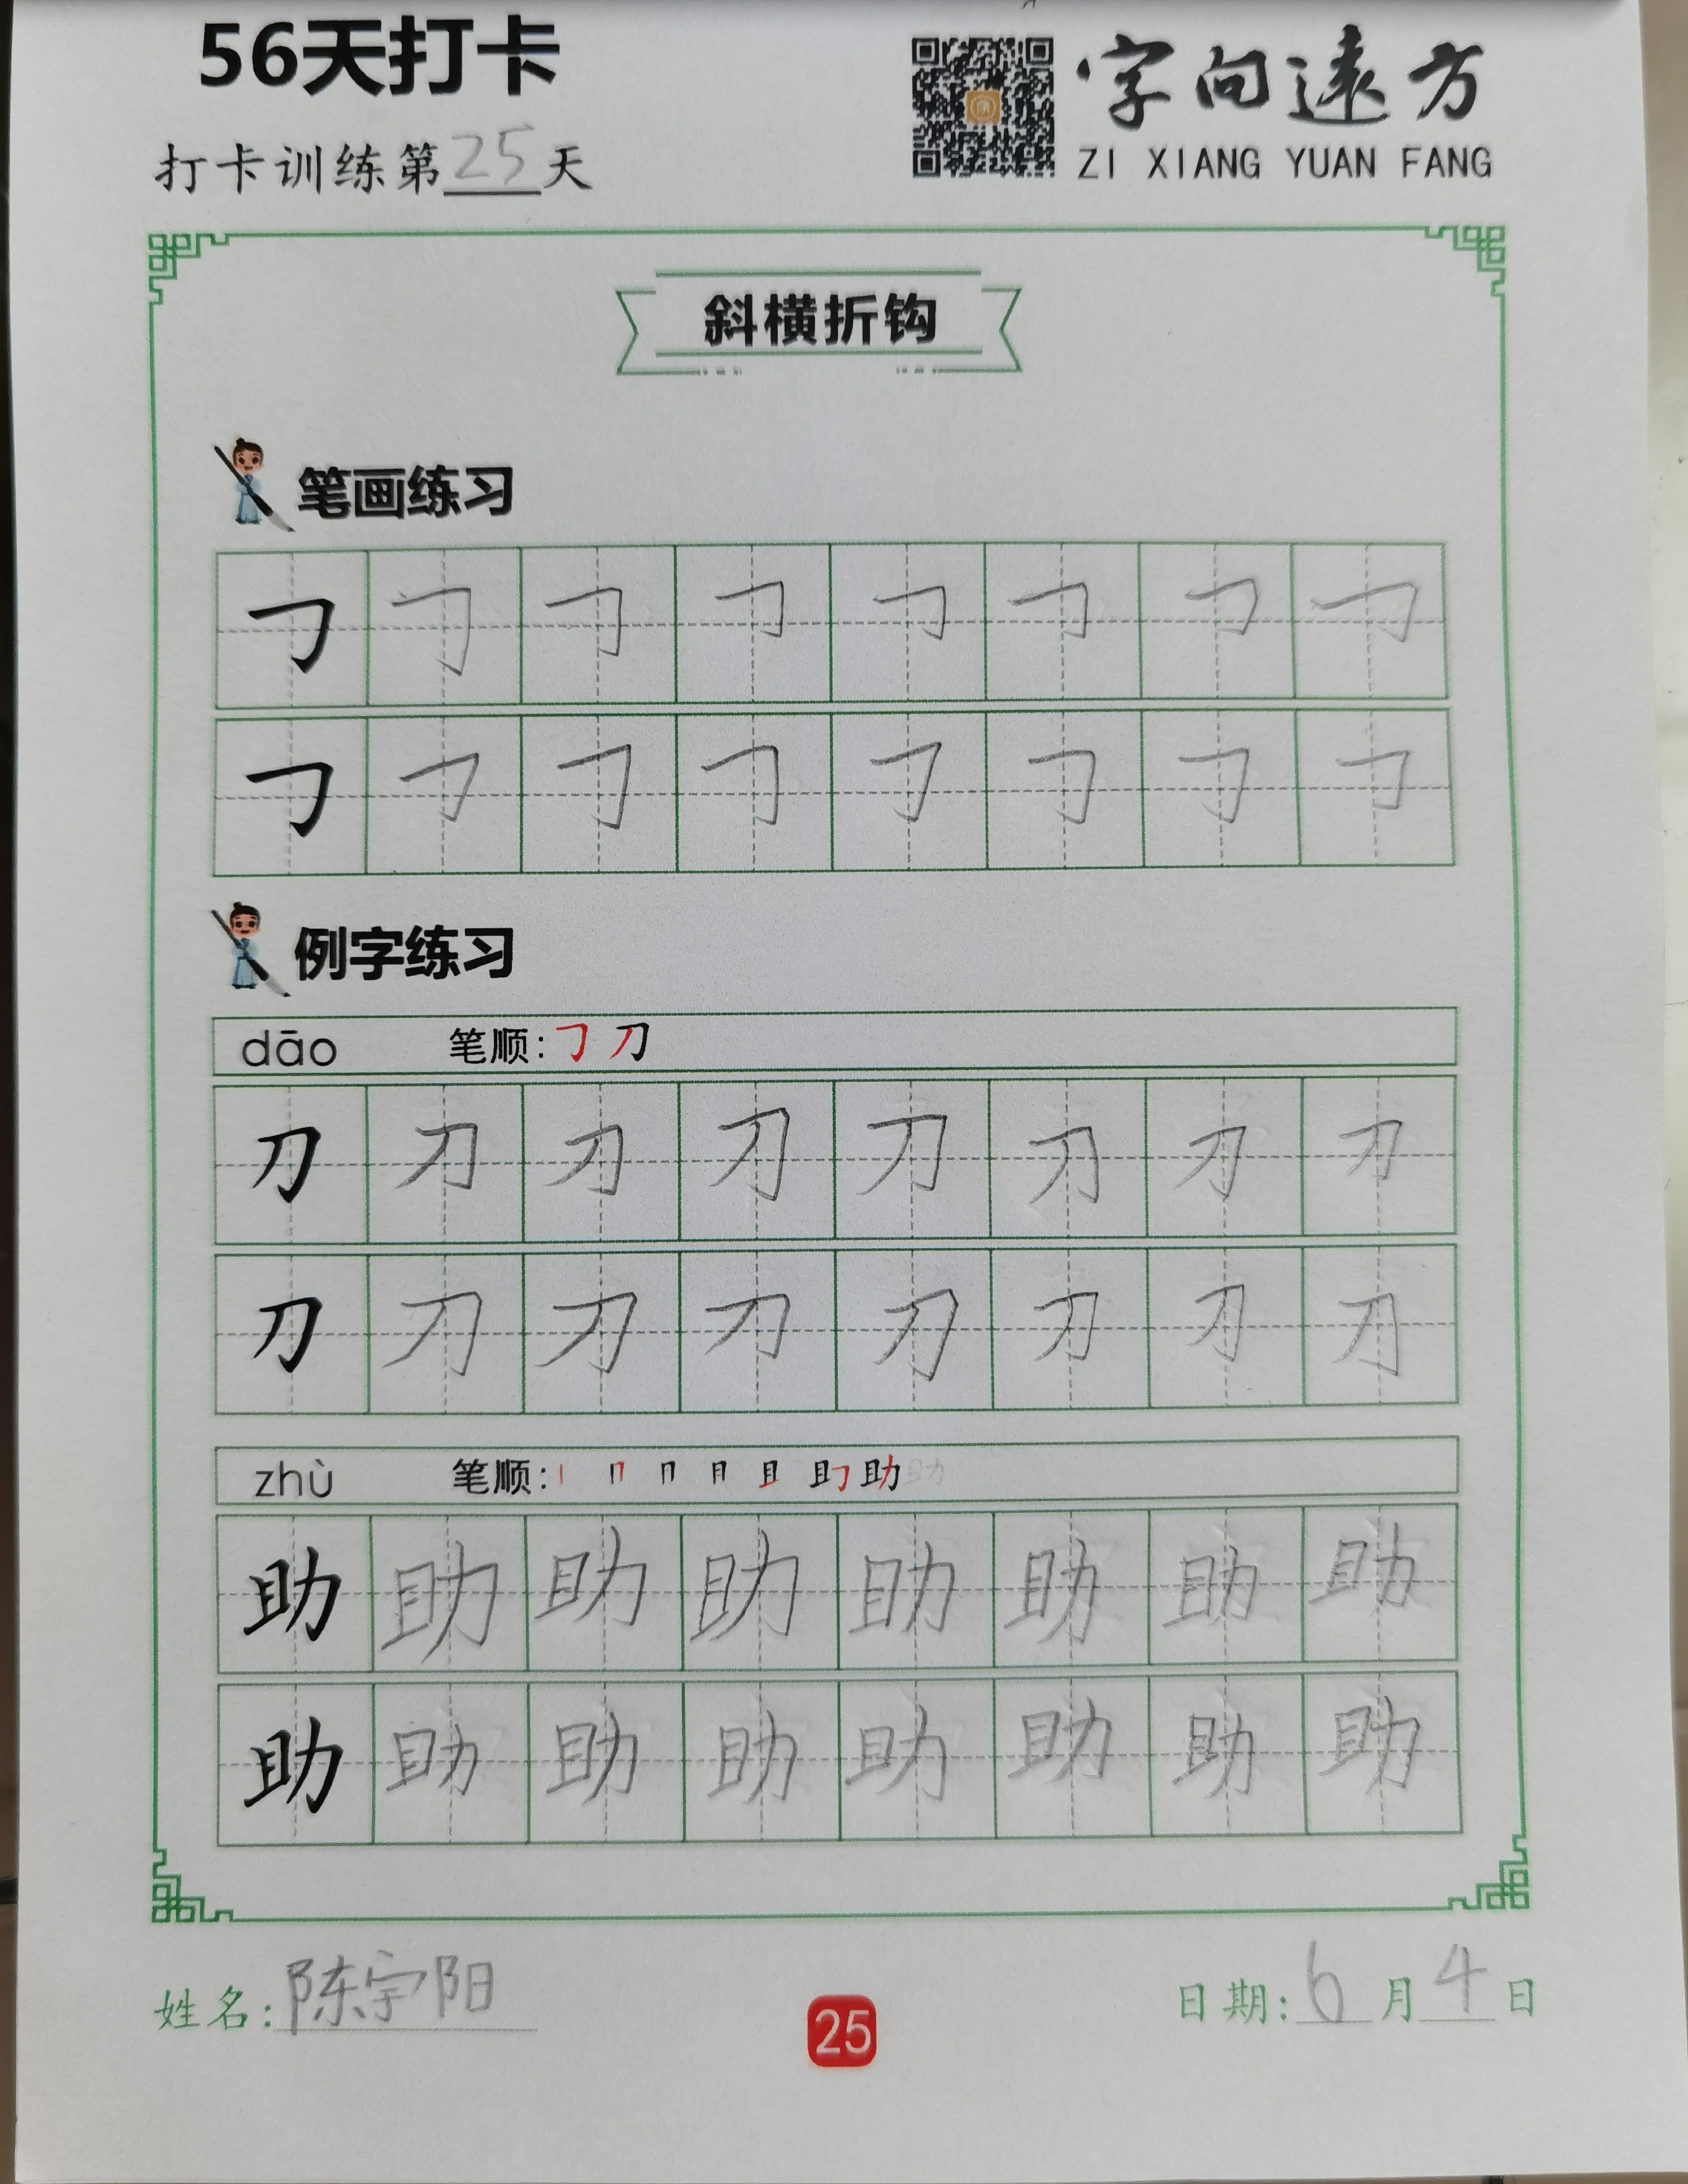 56天打卡
字向遠方
打卡训练第25天
ZI XIANG YUAN FANG
斜横折钩
笔画练习
㇆ ㇆ ㇆ ㇆ ㇆ ㇆ ㇆ ㇆
㇆ ㇆ ㇆ ㇆ ㇆ ㇆ ㇆ ㇆
例字练习
dāo 笔顺: ㇆ 刀
刀 刀 刀 刀 刀 刀 刀 刀
刀 刀 刀 刀 刀 刀 刀 刀
zhù 笔顺: 丨 冂 冃 月 且 助 助
助 助 助 助 助 助 助 助
助 助 助 助 助 助 助 助
姓名: 陈宇阳
25
日期: 6月4日